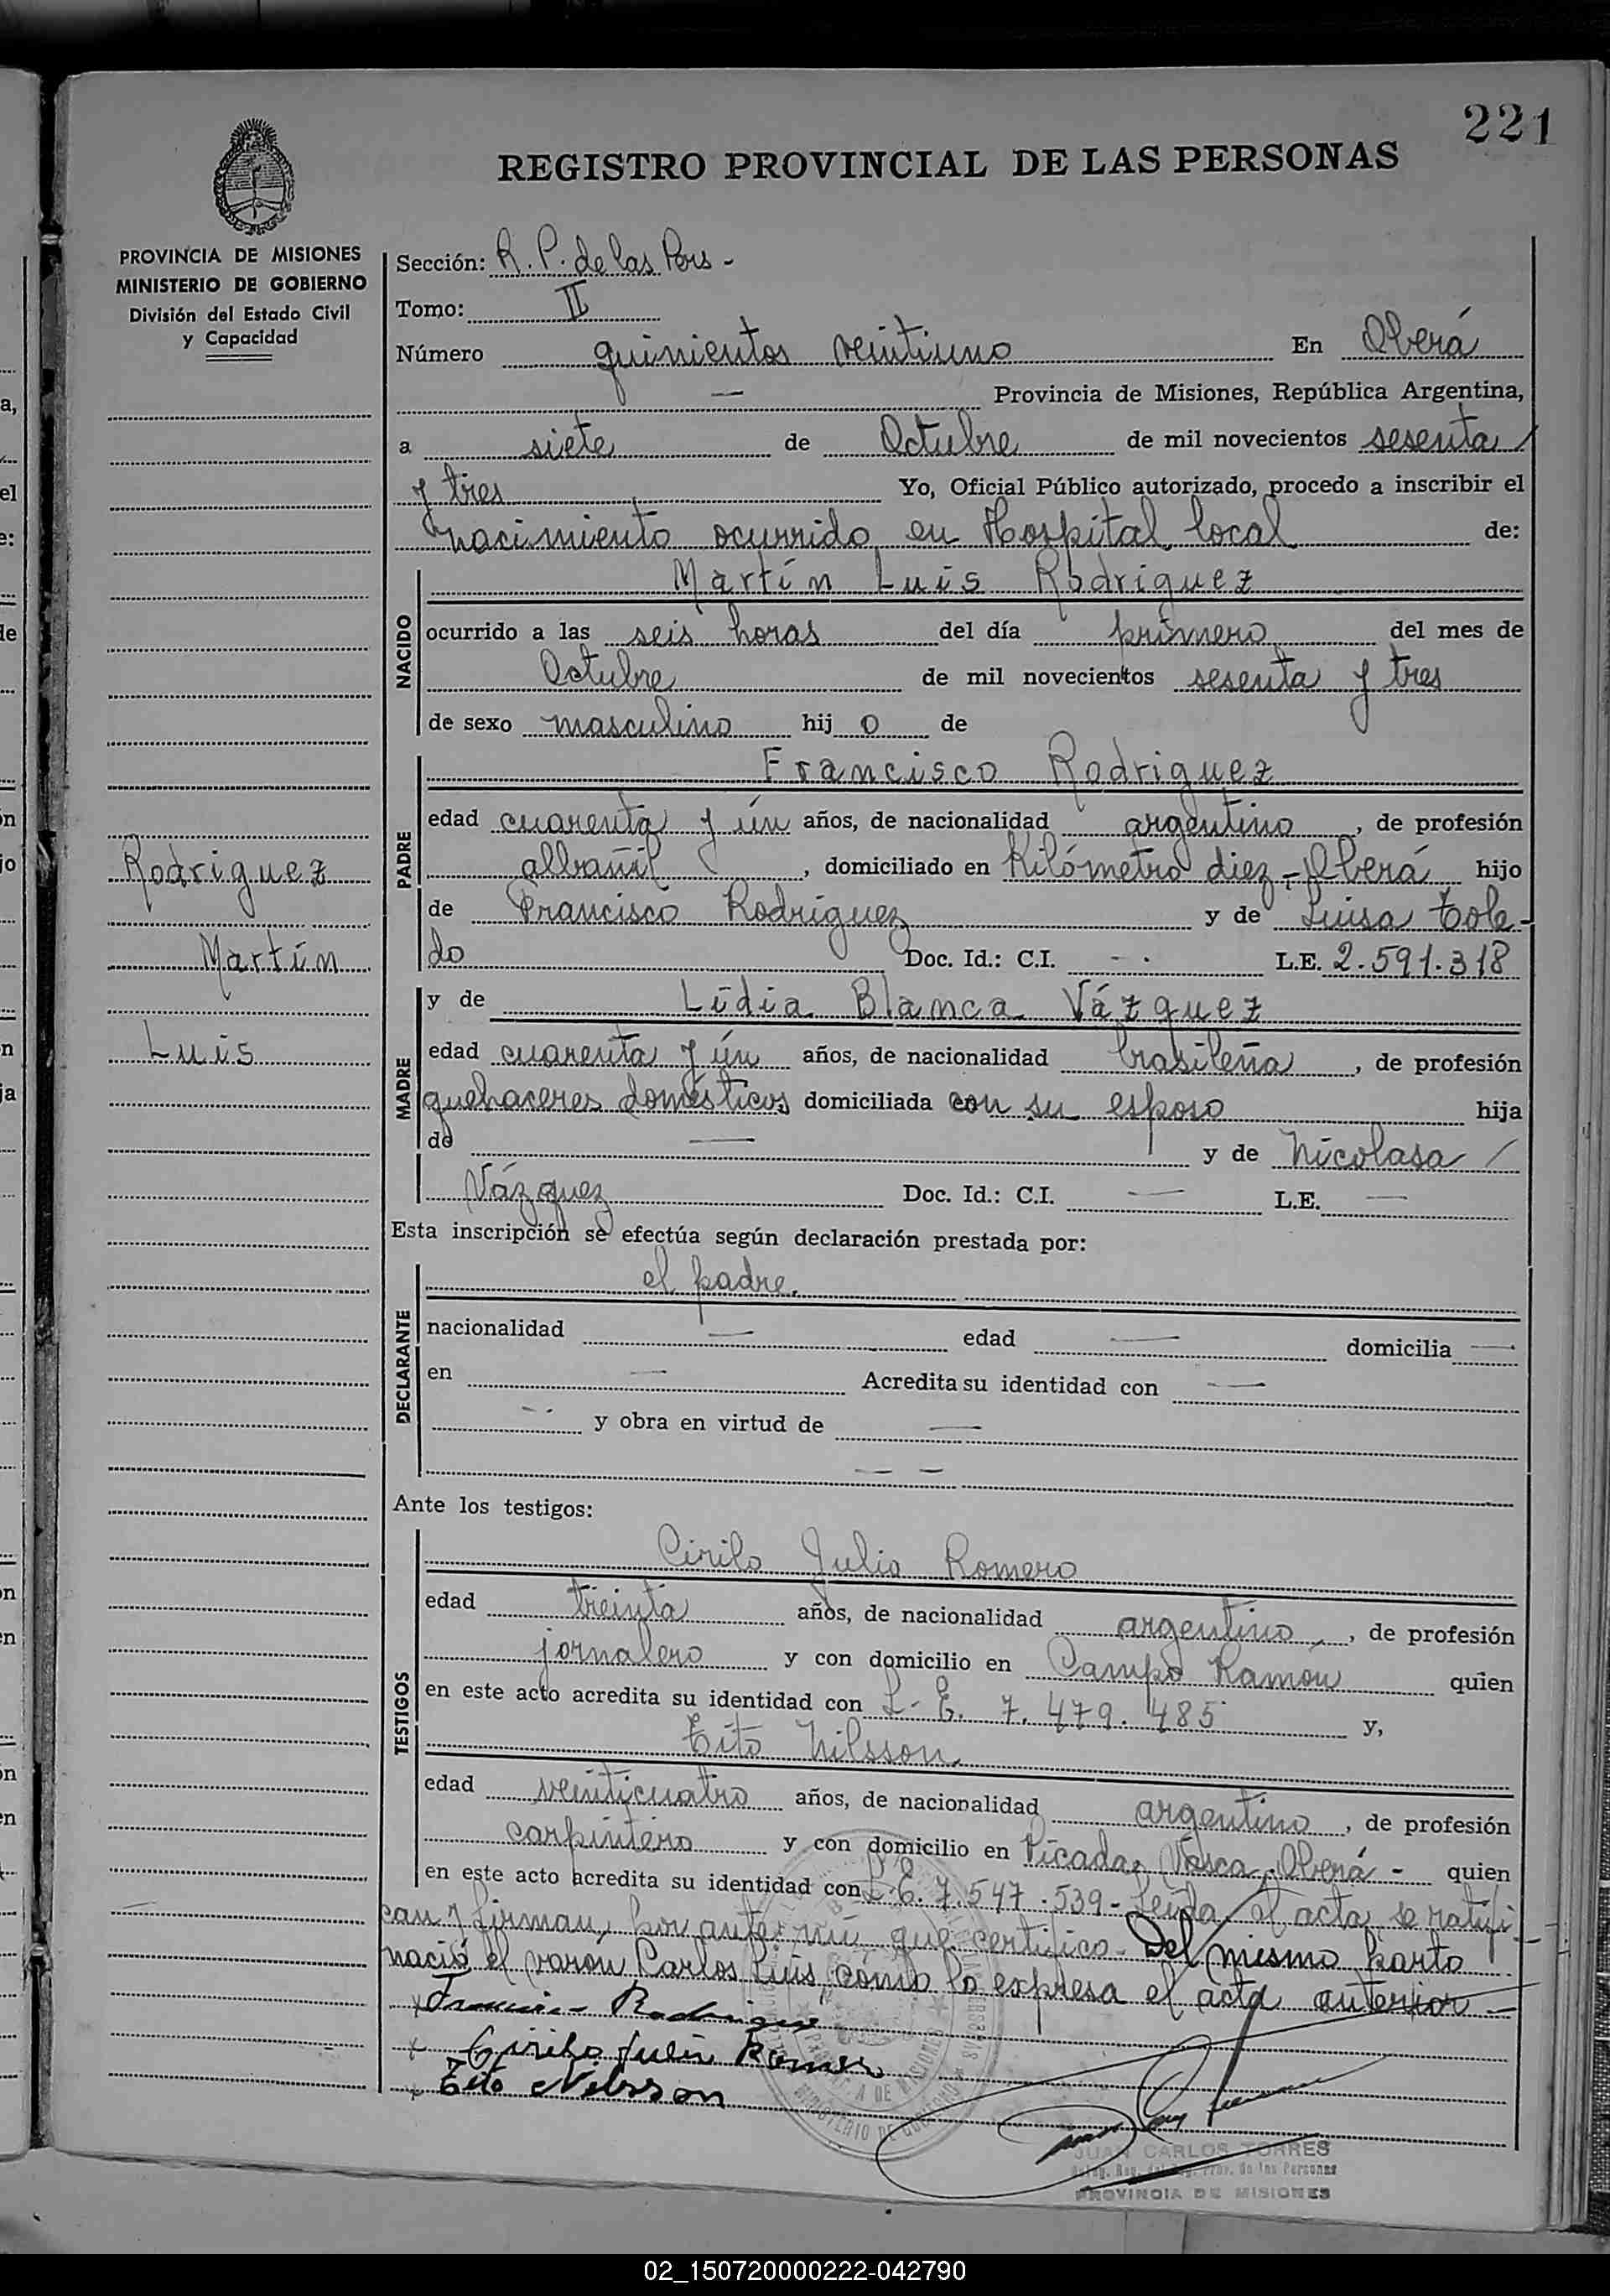 221
REGISTRO PROVINCIAL DE LAS PERSONAS
PROVINCIA DE MISIONES
MINISTERIO DE GOBIERNO
División del Estado Civil
y Capacidad
Rodriguez
Martín
Luis
Sección: R. P. de las Pers -
Tomo: II
Número quinientos veintiuno En Oberá
— Provincia de Misiones, República Argentina,
a siete de Octubre de mil novecientos sesenta /
y tres Yo, Oficial Público autorizado, procedo a inscribir el
nacimiento ocurrido en Hospital local de:
NACIDO
Martín Luis Rodriguez
ocurrido a las seis horas del día primero del mes de
Octubre de mil novecientos sesenta y tres
de sexo masculino hij o de
PADRE
Francisco Rodriguez
edad cuarenta y ún años, de nacionalidad argentino, de profesión
albañil, domiciliado en Kilómetro diez - Oberá hijo
de Francisco Rodriguez y de Luisa Tole-
do Doc. Id.: C.I. - . L.E. 2.591.318
MADRE
y de Lidia Blanca Vázquez
edad cuarenta y ún años, de nacionalidad brasileña, de profesión
quehaceres domésticos domiciliada con su esposo hija
de — y de Nicolasa /
Vázquez Doc. Id.: C.I. — L.E. —
Esta inscripción se efectúa según declaración prestada por:
DECLARANTE
el padre.
nacionalidad — edad — domicilia —
en — Acredita su identidad con —
- - y obra en virtud de —
— —
Ante los testigos:
TESTIGOS
Cirilo Julio Romero
edad treinta años, de nacionalidad argentino, de profesión
jornalero y con domicilio en Campo Ramón quien
en este acto acredita su identidad con L. E. 7.479.485 y,
Tito Nilsson.
edad veinticuatro años, de nacionalidad argentino, de profesión
carpintero y con domicilio en Picada Vasca, Oberá - quien
en este acto acredita su identidad con L.E. 7.547.539 - Leída el acta, se ratifi-
can y firman, por ante mí que certifico - Del mismo parto
nació el varón "Carlos Luis" cómo lo expresa el acta anterior -
x Francisco Rodriguez
x Cirilo Julio Romero
x Tito Nilsson
JUAN CARLOS TORRES
Prov. de las Personas
PROVINCIA DE MISIONES
02_150720000222-042790